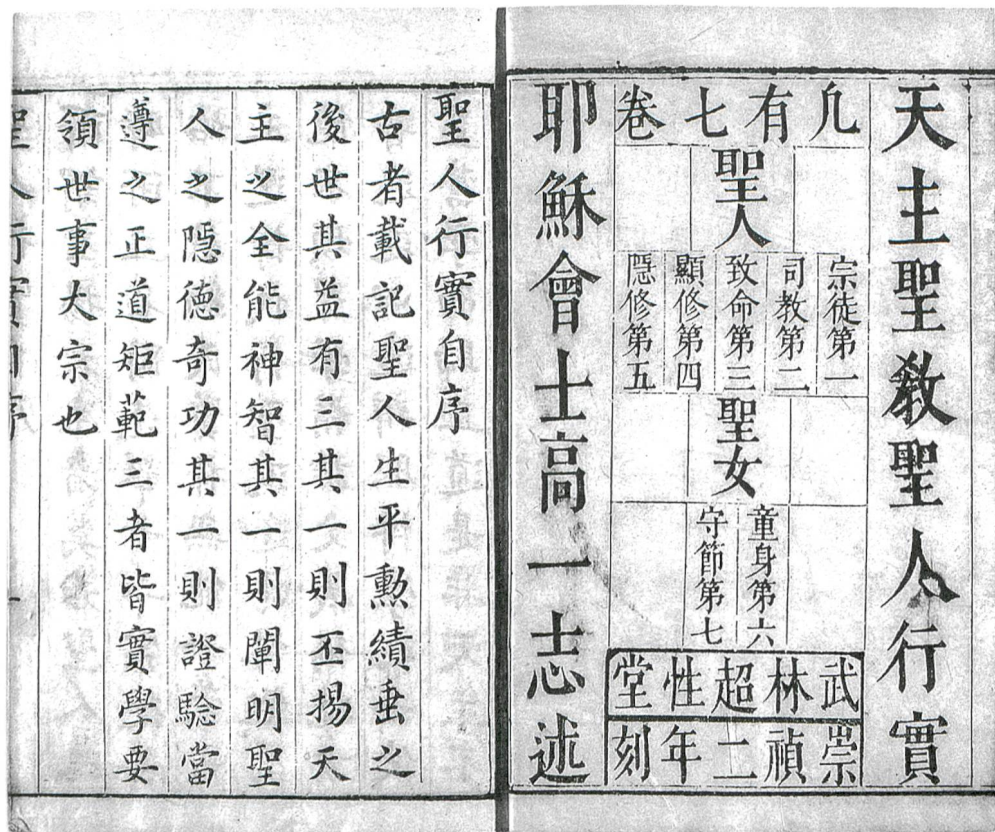 天主聖教聖人行實
凢有七卷
聖人
宗徒第一
司教第二
致命第三
顯修第四
隱修第五
聖女
童身第六
守節第七
武林超性堂
崇禎二年刻
耶穌會士高一志述
聖人行實自序
古者載記聖人生平勲績垂之
後世其益有三其一則丕揚天
主之全能神智其一則闡明聖
人之隱德奇功其一則證驗當
遵之正道矩範三者皆實學要
領世事大宗也
聖人行實自序 一